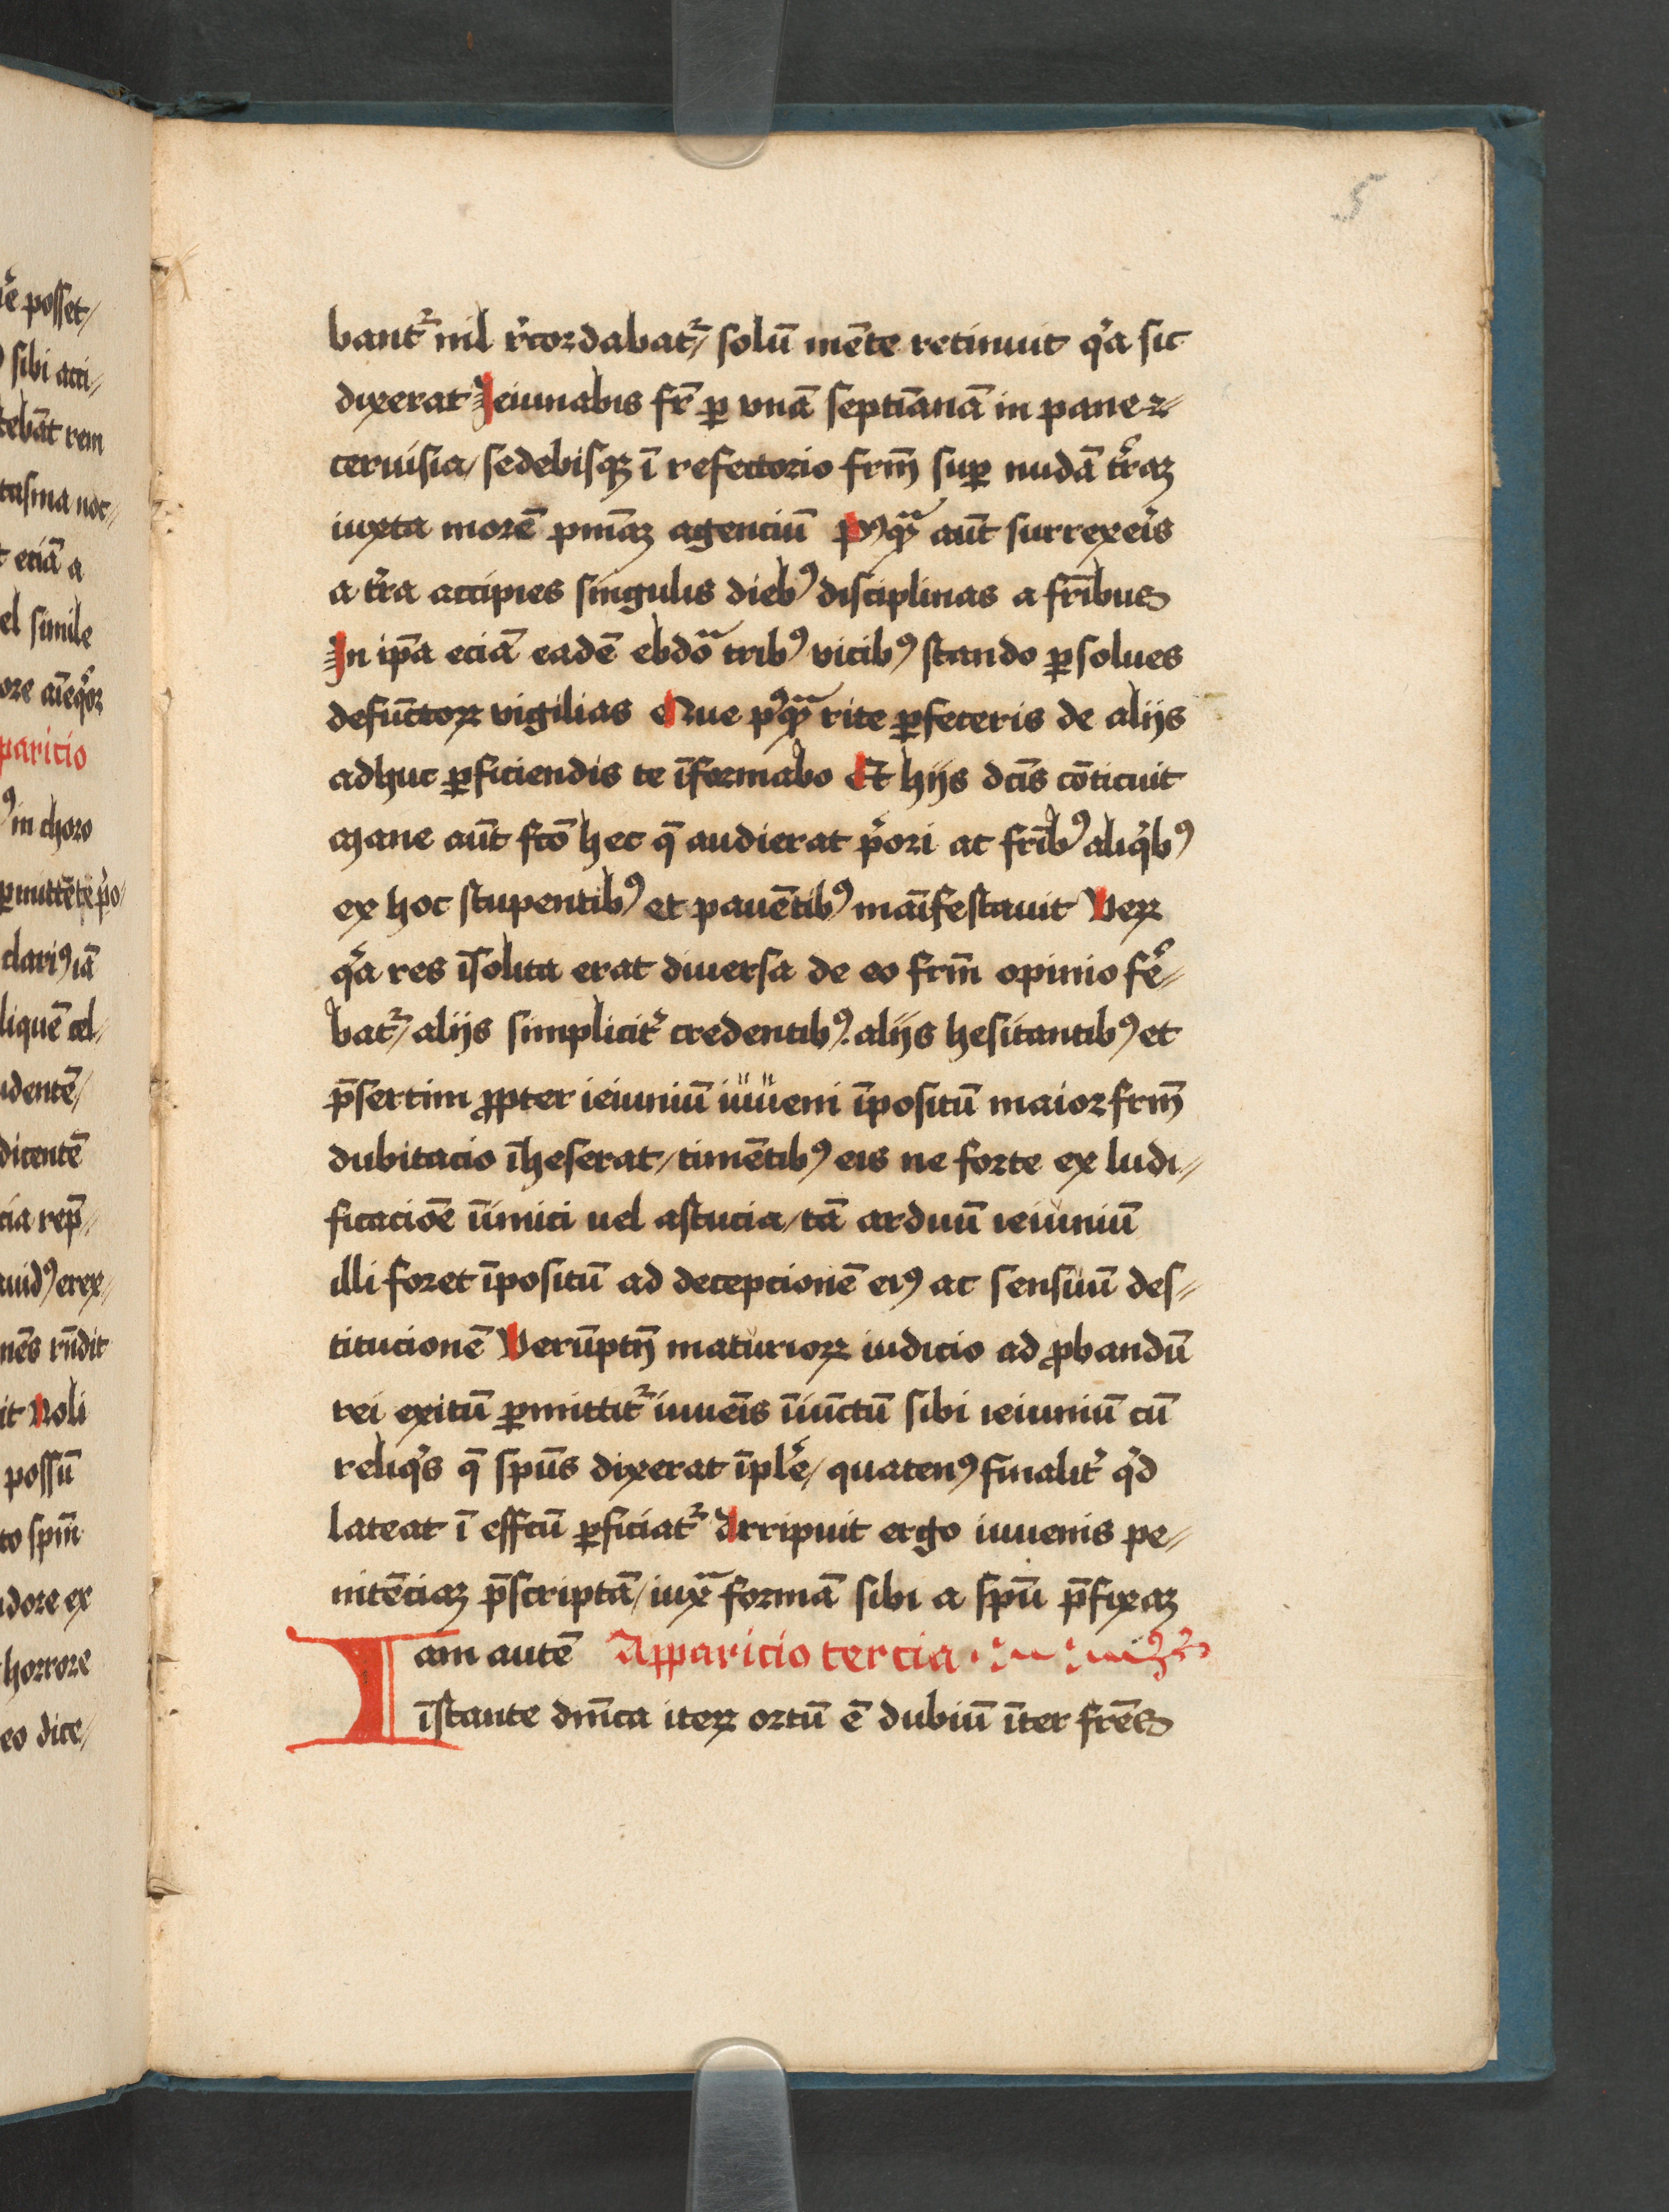 5
bant᷑ nil r̾cordabat᷑/ solū mēte retinuit qͥa sic
dixerat Jeiunabis fr̄ ꝑ vnā septīanā in pane ⁊
ceruisia/ sedebisqꝫ ī refectorio frm̄ suꝑ nudā tr̄aꝫ
iuxta morē pnīaꝫ agenciū Pꝰqᷓ aūt surrexeīs
a tr̄a accipies singulis diebꝰ disciplinas a frībus
Jn ip̄a eciā eadē ebdōᵃ tribꝰ vicibꝰ stando ꝑsolues
defūctoꝝ vigilias Que pꝰqᷓ rite ꝑfeceris de alijs
adhuc ꝑficiendis te īformabo Et hijs dc̄is cōticuit
Mane aūt fc̄o hec q̄ audierat pͥori ac frībꝰ aliqͥbꝰ
ex hoc stupentibꝰ et pauētibꝰ maīfestauit Veꝝ
qͥa res īsolita erat diuersa de eo frm̄ opinio fer̄⸗
bat᷑/ alijs simplicit᷑ credentibꝰ. alijs hesitantibꝰ et
p̄sertim ꝓpter ieiuniū iuueni īpositū maior frm̄
dubitacio īheserat/ timētibꝰ eis ne forte ex ludi⸗
ficaciōe īimici uel astucia/ tā arduū ieiuniū
illi foret īpositū ad decepcionē eiꝰ ac sensuū des⸗
titucionē Verūptn̄ maturioꝝ iudicio ad ꝓbandū
rei exitū ꝑmittit᷑ iuuēis īiūctū sibi ieiuniū cū
reliqͥs q̄ spūs dixerat īpler̄e/ quatenꝰ finalit᷑ qͥd
lateat ī effc̄u ꝑficiat᷑ Arripuit ergo iuuenis pe⸗
nitēciaꝫ p̄scriptā/ iuxᵃ formā sibi a spū p̄fixaꝫ
Iam autē Apparicio tercia
īstante dn̄ica iteꝝ ortū ē dubiū īter frēs